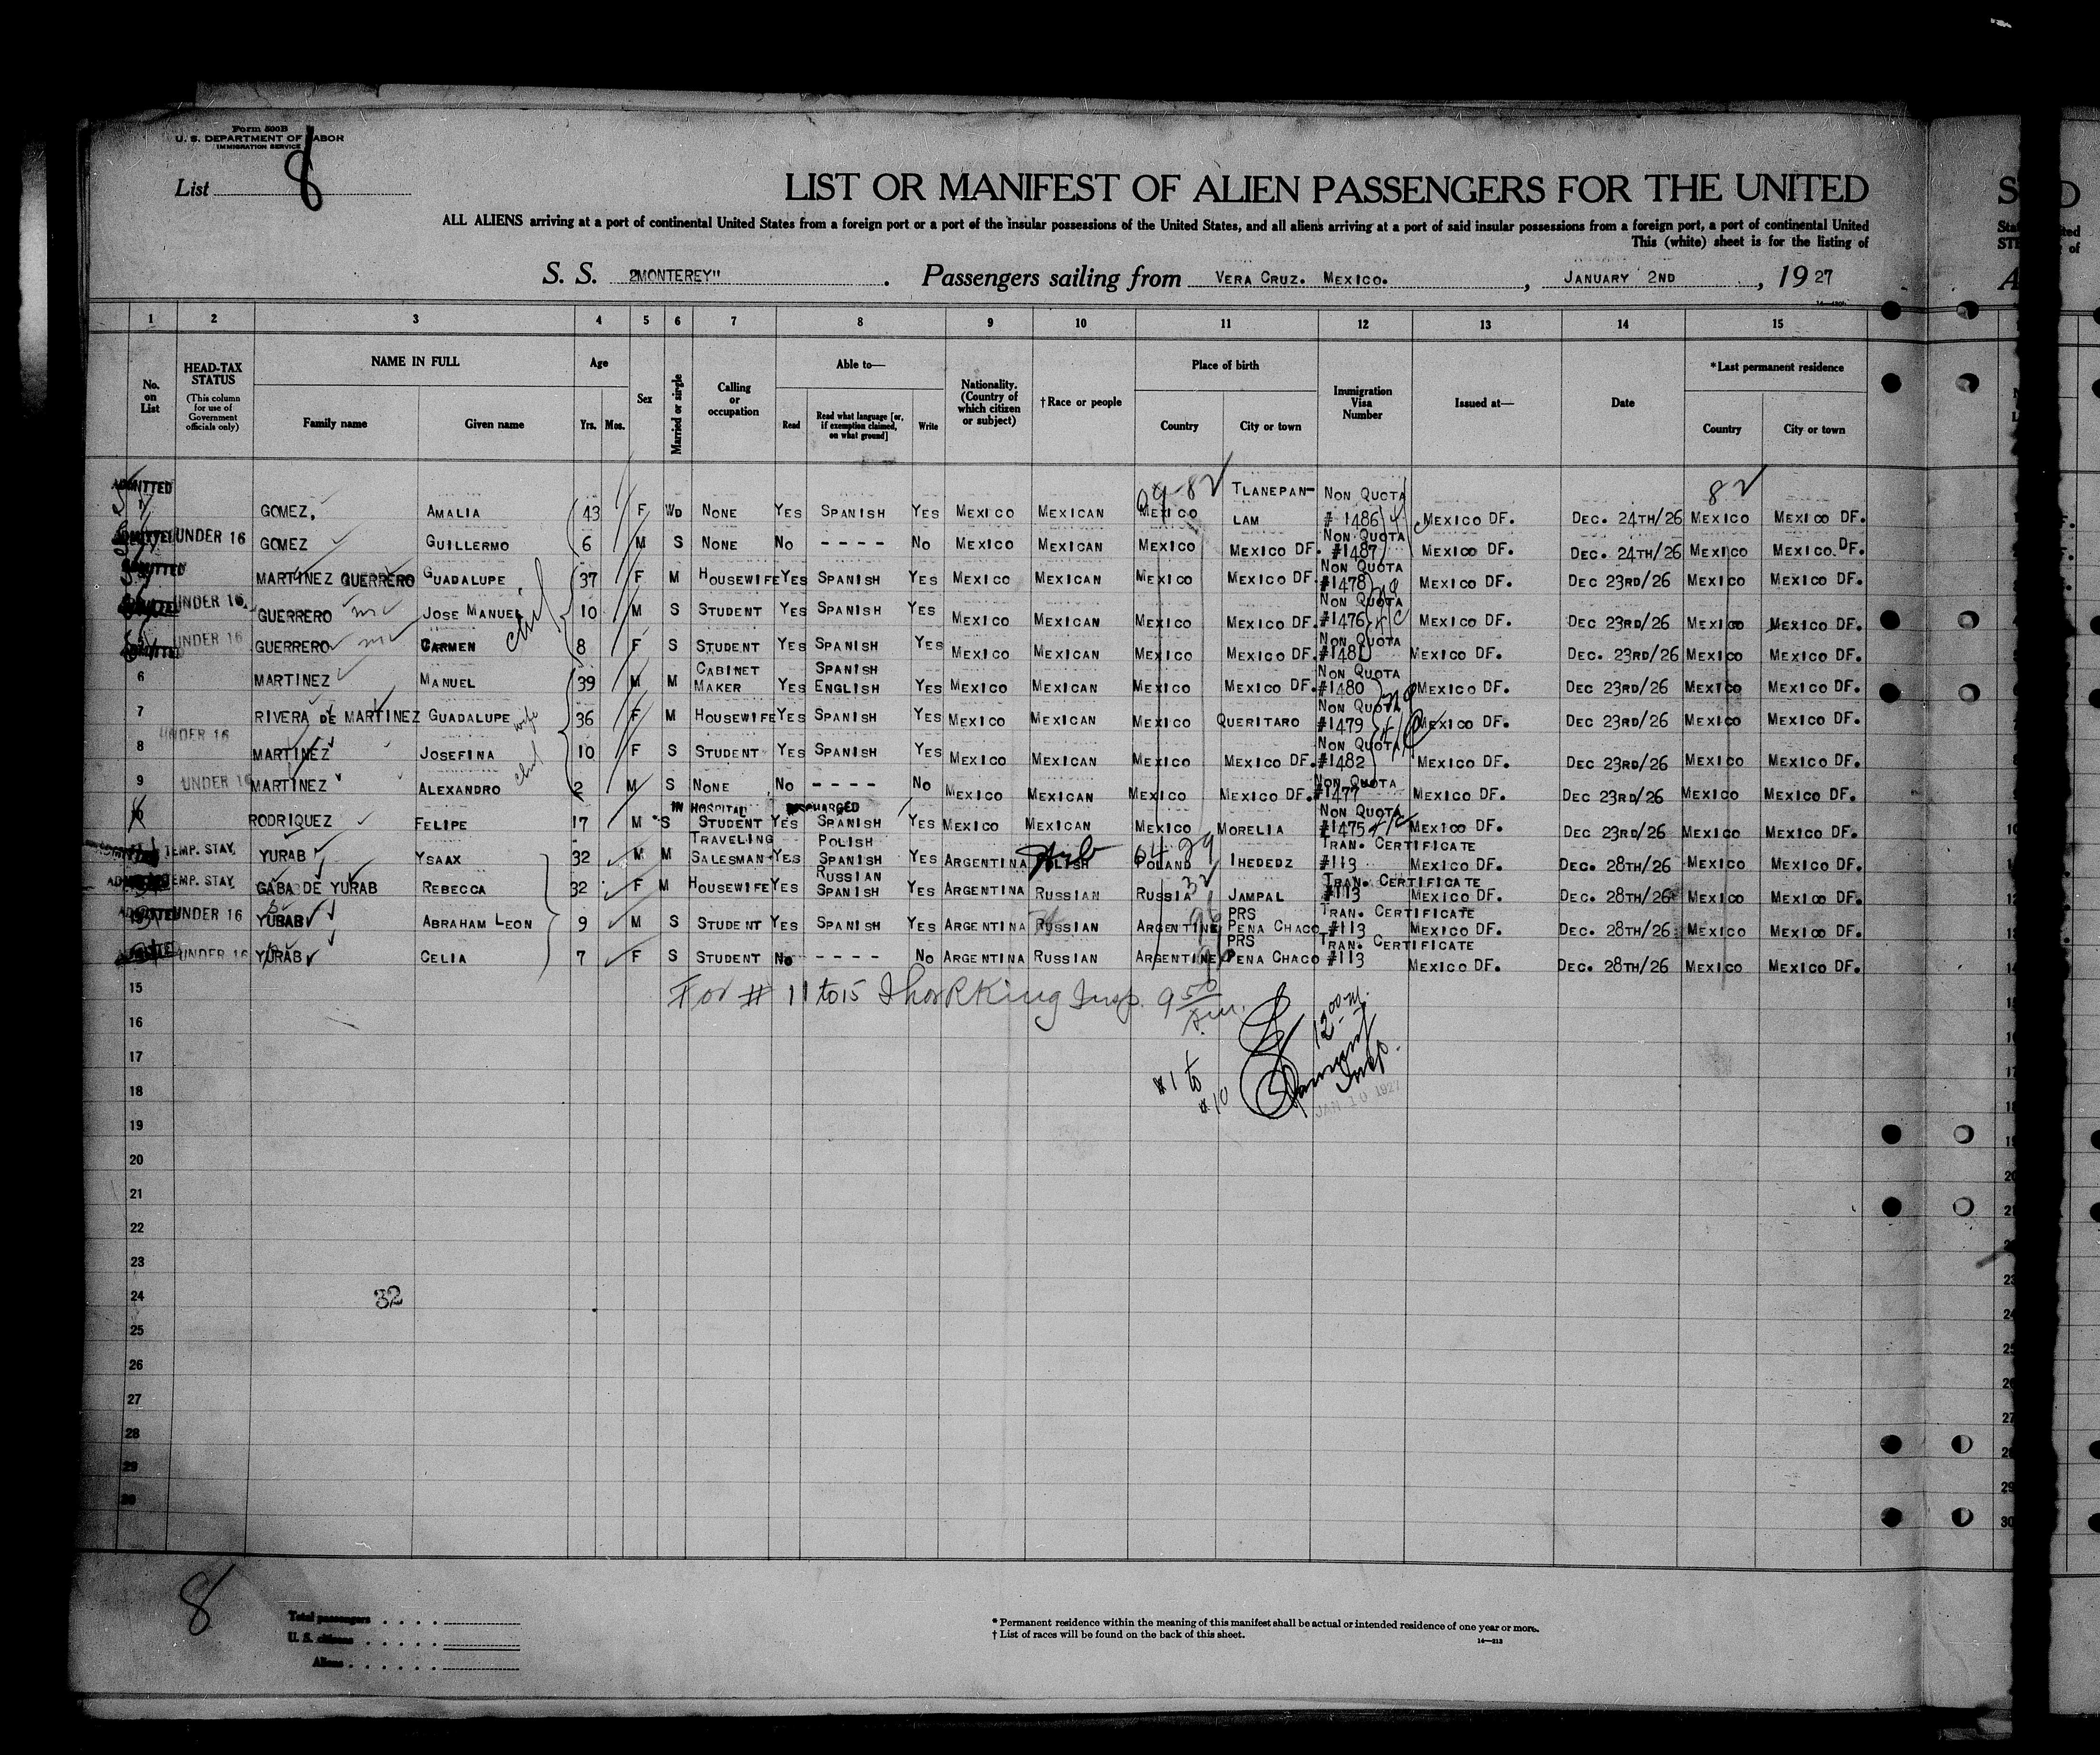 Form 500B
U. S. DEPARTMENT OF LABOR
IMMIGRATION SERVICE
List 8
LIST OR MANIFEST OF ALIEN PASSENGERS FOR THE UNITED
ALL ALIENS arriving at a port of continental United States from a foreign port or a port of the insular possessions of the United States, and all aliens arriving at a port of said insular possessions from a foreign port, a port of continental United
This (white) sheet is for the listing of
S. S. 2MONTEREY" . Passengers sailing from VERA CRUZ. MEXICO. , JANUARY 2ND , 19 27
1 2 3 4 5 6 7 8 9 10 11 12 13 14 15
No. on List
HEAD-TAX STATUS
(This column for use of Government officials only)
NAME IN FULL
Family name Given name
Age
Yrs. Mos.
Sex
Married or single
Calling or occupation
Able to—
Read Read what language [or, if exemption claimed, on what ground] Write
Nationality. (Country of which citizen or subject)
† Race or people
Place of birth
Country City or town
Immigration Visa Number
Issued at—
Date
*Last permanent residence
Country City or town
ADMITTED 09-82 TLANEPAN- NON QUOTA 82
GOMEZ. AMALIA 43 F WD NONE YES SPANISH YES MEXICO MEXICAN MEXICO LAM # 1486 MEXICO DF. DEC. 24TH/26 MEXICO MEXICO DF.
ADMITTED UNDER 16 NON QUOTA
GOMEZ GUILLERMO 6 M S NONE NO ---- NO MEXICO MEXICAN MEXICO MEXICO DF. #1487 MEXICO DF. DEC. 24TH/26 MEXICO MEXICO.DF.
ADMITTED NON QUOTA
MARTINEZ GUERRERO GUADALUPE 37 F M HOUSEWIFE YES SPANISH YES MEXICO MEXICAN MEXICO MEXICO DF. #1478 MEXICO DF. DEC 23RD/26 MEXICO MEXICO DF.
UNDER 16 NON QUOTA
GUERRERO JOSE MANUEL 10 M S STUDENT YES SPANISH YES MEXICO MEXICAN MEXICO MEXICO DF. #1476 MEXICO DF. DEC 23RD/26 MEXICO MEXICO DF.
UNDER 16 NON QUOTA
GUERRERO CARMEN 8 F S STUDENT YES SPANISH YES MEXICO MEXICAN MEXICO MEXICO DF. #1481 MEXICO DF. DEC. 23RD/26 MEXICO MEXICO DF.
CABINET SPANISH NON QUOTA
6 MARTINEZ MANUEL 39 M M MAKER YES ENGLISH YES MEXICO MEXICAN MEXICO MEXICO DF. #1480 MEXICO DF. DEC 23RD/26 MEXICO MEXICO DF.
NON QUOTA
7 RIVERA DE MARTINEZ GUADALUPE wife 36 F M HOUSEWIFE YES SPANISH YES MEXICO MEXICAN MEXICO QUERITARO #1479 MEXICO DF. DEC 23RD/26 MEXICO MEXICO DF.
UNDER 16 NON QUOTA
8 MARTINEZ JOSEFINA 10 F S STUDENT YES SPANISH YES MEXICO MEXICAN MEXICO MEXICO DF. #1482 MEXICO DF. DEC 23RD/26 MEXICO MEXICO DF.
NON QUOTA
9 UNDER 16 MARTINEZ ALEXANDRO 2 M S NONE NO ---- NO MEXICO MEXICAN MEXICO MEXICO DF. #1477 MEXICO DF. DEC 23RD/26 MEXICO MEXICO DF.
IN HOSPITAL DISCHARGED NON QUOTA
10 RODRIQUEZ FELIPE 17 M S STUDENT YES SPANISH YES MEXICO MEXICAN MEXICO MORELIA #1475 MEXICO DF. DEC 23RD/26 MEXICO MEXICO DF.
TEMP. STAY TRAVELING POLISH TRAN. CERTIFICATE
YURAB YSAAX 32 M M SALESMAN YES SPANISH YES ARGENTINA POLISH POLAND IHEDEDZ #113 MEXICO DF. DEC. 28TH/26 MEXICO MEXICO DF.
TEMP. STAY RUSSIAN TRAN. CERTIFICATE
GABA DE YURAB REBECCA 32 F M HOUSEWIFE YES SPANISH YES ARGENTINA RUSSIAN RUSSIA JAMPAL #113 MEXICO DF. DEC. 28TH/26 MEXICO MEXICO DF.
UNDER 16 PRS TRAN. CERTIFICATE
YURAB ABRAHAM LEON 9 M S STUDENT YES SPANISH YES ARGENTINA RUSSIAN ARGENTINE PENA CHACO #113 MEXICO DF. DEC. 28TH/26 MEXICO MEXICO DF.
UNDER 16 PRS TRAN. CERTIFICATE
YURAB CELIA 7 F S STUDENT NO ---- NO ARGENTINA RUSSIAN ARGENTINE PENA CHACO #113 MEXICO DF. DEC. 28TH/26 MEXICO MEXICO DF.
15 For # 11 to 15 Thos R King Insp. 9 50 Am.
16
12 00 M.
17
#1 to #10 Insp.
18
JAN 10 1927
19
20
21
22
23
24 32
25
26
27
28
29
30
8
Total passengers
U. S. citizens
Aliens
* Permanent residence within the meaning of this manifest shall be actual or intended residence of one year or more.
† List of races will be found on the back of this sheet.
14—213